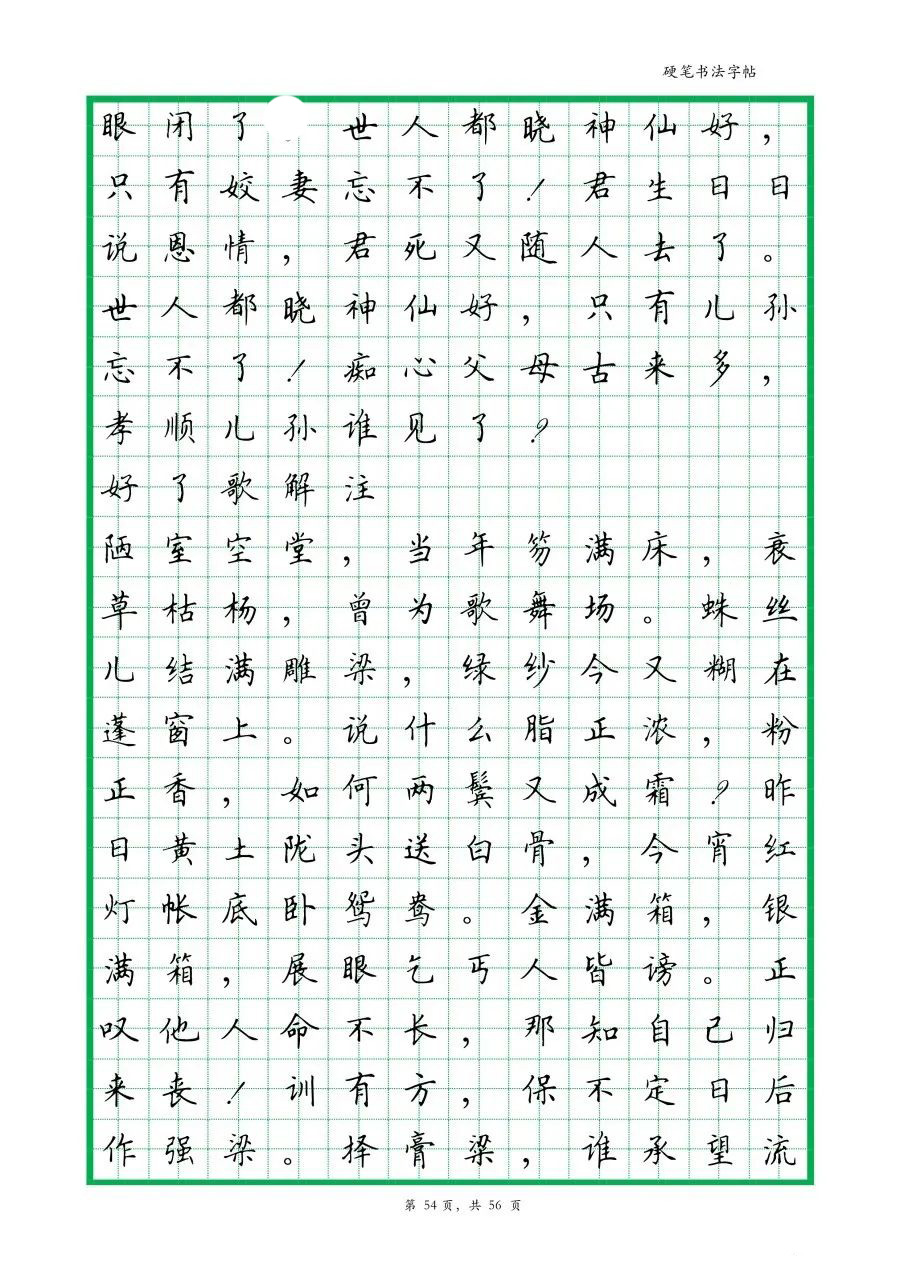 硬笔书法字帖
眼闭了 世人都晓神仙好，
只有姣妻忘不了！君生日日
说恩情，君死又随人去了。
世人都晓神仙好，只有儿孙
忘不了！痴心父母古来多，
孝顺儿孙谁见了？
好了歌解注
陋室空堂，当年笏满床，衰
草枯杨，曾为歌舞场。蛛丝
儿结满雕梁，绿纱今又糊在
蓬窗上。说什么脂正浓，粉
正香，如何两鬓又成霜？昨
日黄土陇头送白骨，今宵红
灯帐底卧鸳鸯。金满箱，银
满箱，展眼乞丐人皆谤。正
叹他人命不长，那知自己归
来丧！训有方，保不定日后
作强梁。择膏梁，谁承望流
第 54 页，共 56 页